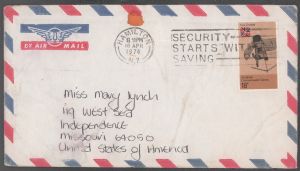 BY AIR MAIL
HAMILTON
18 APR
1974
N.Z.
SECURITY
STARTS WITH
SAVING
18c
Miss Mary Lynch
119 West Sea
Independence
Missouri 64050
United States of America